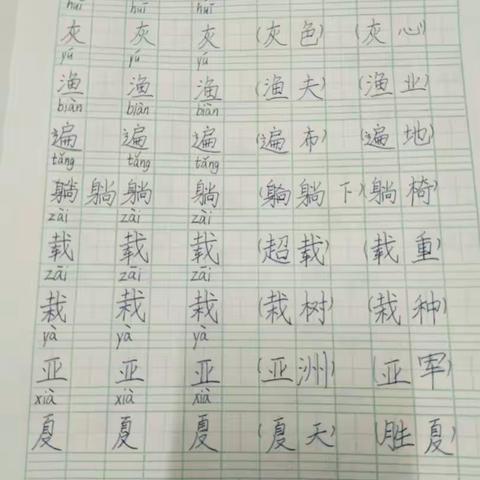 huī huī huī
灰 灰 灰 (灰色) (灰心)
yú yú yú
渔 渔 渔 (渔夫) (渔业)
biàn biàn biàn
遍 遍 遍 (遍布) (遍地)
tǎng tǎng tǎng
躺 躺 躺 躺 (躺躺下)(躺椅)
zài zài zài
载 载 载 (超载) (载重)
zāi zāi zāi
栽 栽 栽 (栽树) (栽种)
yà yà yà
亚 亚 亚 (亚洲) (亚军)
xià xià xià
夏 夏 夏 (夏天) (胜夏)